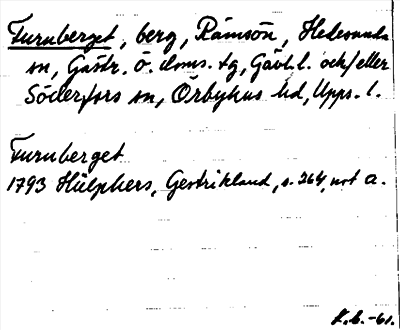 Furuberget, berg, Rämsön, Hedesunda
sn, Gästr. ö. doms. tg, Gävl. l. och/eller
Söderfors sn, Örbyhus hd, Upps. l.
Furuberget
1793 Hülphers, Gestrikland, s. 264, not a.
K.G. -61.